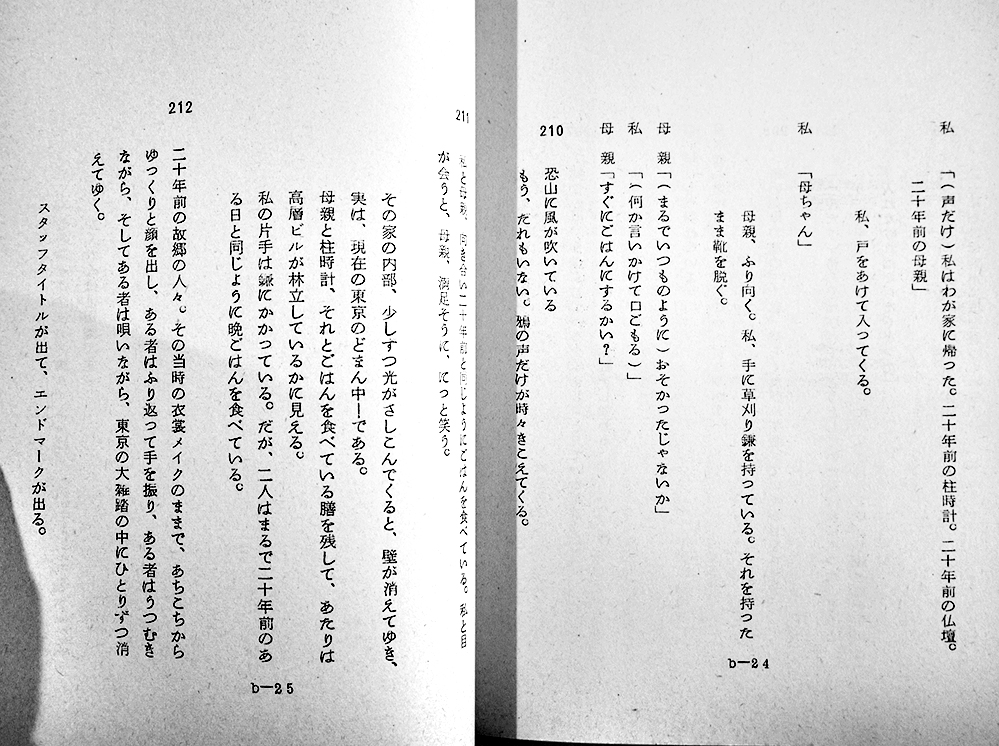 私　「（声だけ）私はわが家に帰った。二十年前の柱時計。二十年前の仏壇。
二十年前の母親」
私、戸をあけて入ってくる。
私　「母ちゃん」
母親、ふり向く。私、手に草刈り鎌を持っている。それを持った
まま靴を脱ぐ。
母　親「（まるでいつものように）おそかったじゃないか」
私　「（何か言いかけて口ごもる）」
母　親「すぐにごはんにするかい？」
210
恐山に風が吹いている
もう、だれもいない。鴉の声だけが時々きこえてくる。
b―24
211
私と母親、向き合い二十年前と同じようにごはんを食べている。私と目
が会うと、母親、満足そうに、にっと笑う。
その家の内部、少しずつ光がさしこんでくると、壁が消えてゆき、
実は、現在の東京のどまん中ーである。
母親と柱時計、それとごはんを食べている膳を残して、あたりは
高層ビルが林立しているかに見える。
私の片手は鎌にかかっている。だが、二人はまるで二十年前のあ
る日と同じように晩ごはんを食べている。
212
二十年前の故郷の人々。その当時の衣裳メイクのままで、あちこちから
ゆっくりと顔を出し、ある者はふり返って手を振り、ある者はうつむき
ながら、そしてある者は唄いながら、東京の大雑踏の中にひとりずつ消
えてゆく。
スタッフタイトルが出て、エンドマークが出る。
b―25